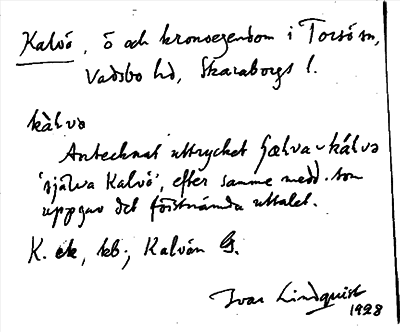 Kalvö, ö och kronoegendom i Torsö sn,
Vadsbo hd, Skaraborgs l.
kàlvə
Antecknat uttrycket sjælva-kálvə
'själva Kalvö', efter samme medd. som
uppgav det förstnämda uttalet.
K. ek, kb; Kalvön G.
Ivar Lindquist
1928